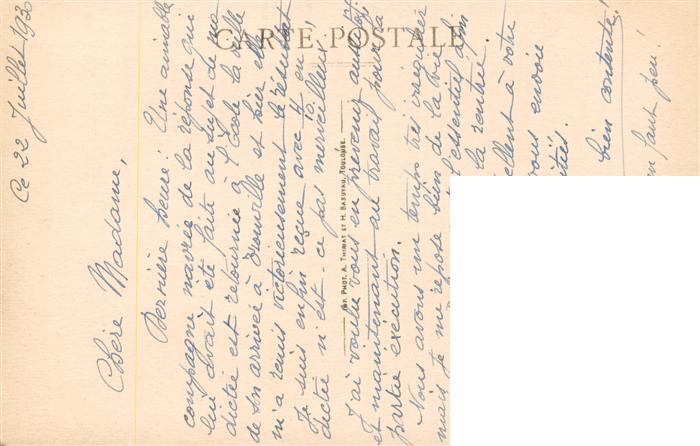 Ce 22 Juillet 1930
Chère Madame,
Dernière heure! Une aimable
compagne navrée de la réponse qui
lui avait été faite au sujet de ma
dictée est retournée à l'école la veille
de son arrivée à Trouville et hier elle
m'a remis victorieusement le résultat
Je suis enfin reçue avec 10 en
dictée n'est-ce pas merveilleux!
J'ai voulu vous en prévenir aussitôt
et maintenant au travail pour la
partie exécution.
Nous avons un temps très irrégulier
mais je me repose bien de la vie
l'essentiel
la rentrée
à votre
vous envoie
bien contente!
faut peu!
CARTE POSTALE
PHOT. A. THIRIAT ET H. BASUYAU, TOULOUSE